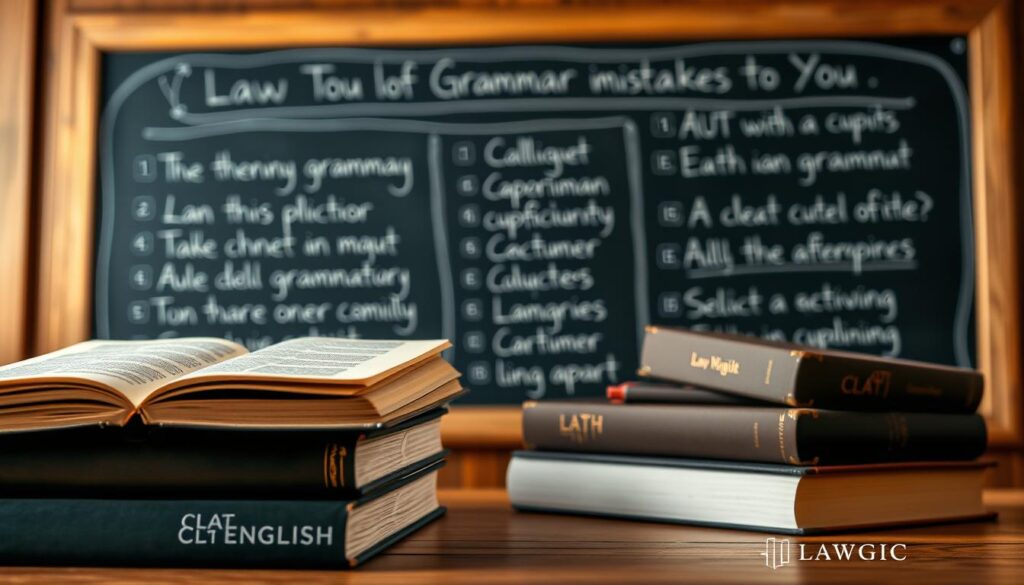 Law Tou lof Grammar mistakes to You.
1 The thenny grammay
2 Lan this plictior
4 Take chnet in mgut
Aule dell grammatury
5 Ton thare oner comilly
Calligjet
Caporiman
cupficiunty
Cactumer
Culuctes
Lamgries
Cartumer
ling apart
1 AUT with a cupits
E Eath ian grammut
E A cleat cutel of ite?
E Aılļ the afterpires
E Selict a activing
cuplining
CLAT
CLT ENGLISH
CLAT
LATH
LAWGIC